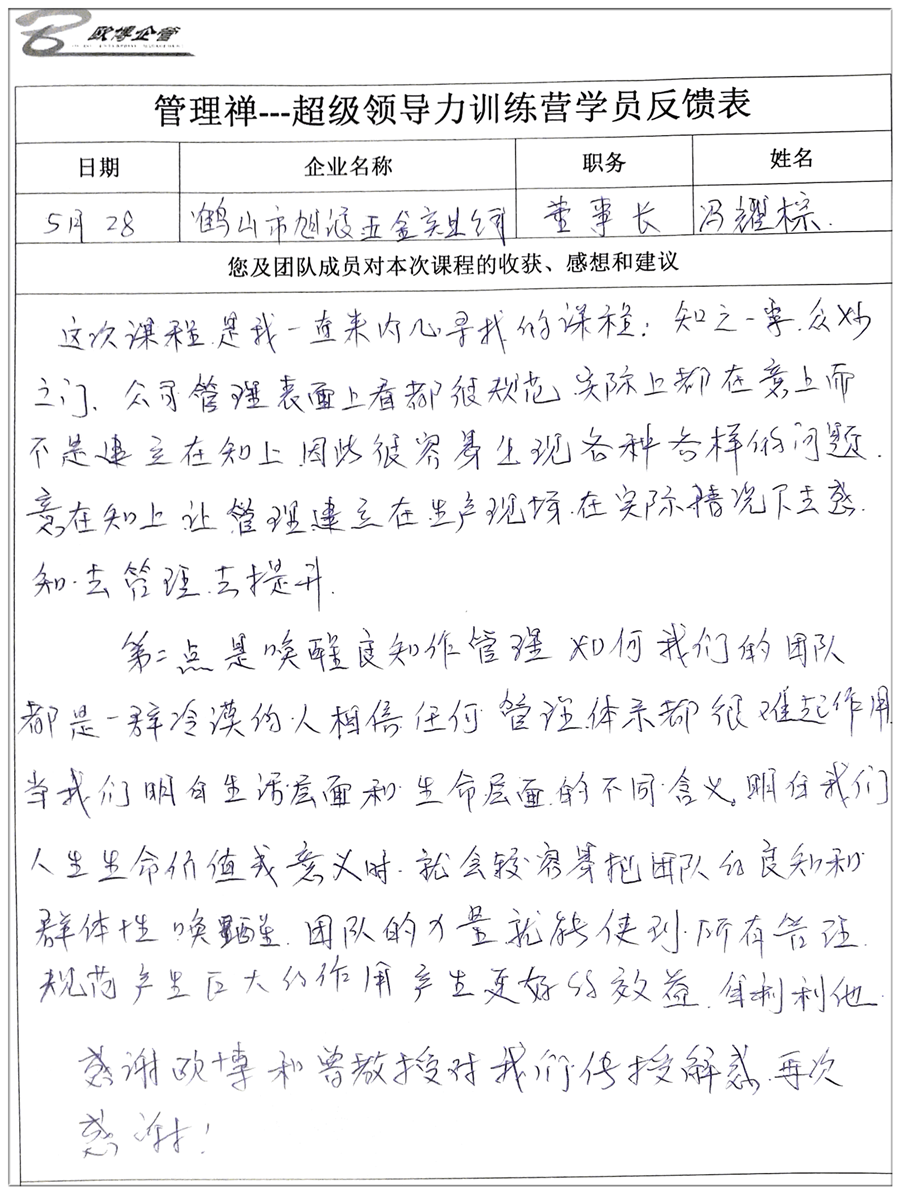 欧博企管
管理禅---超级领导力训练营学员反馈表
日期 企业名称 职务 姓名
5月28 鹤山市旭波五金实业公司 董事长 冯耀棕.
您及团队成员对本次课程的收获、感想和建议
这次课程是我一直来内心寻找的课程; 知之一事.众妙
之门、公司管理表面上看都很规范.实际上都在意上而
不是建立在知上.因此很容易出现各种各样的问题.
意在知上.让管理建立在生产现场.在实际情况下去感
知.去管理.去提升.
第二点是唤醒良知作管理 如何我们的团队
都是一群冷漠的人相信任何管理体系都很难起作用
当我们明白生活层面和生命层面的不同含义,明白我们
人生生命价值或意义时.就会较容易把团队的良知和
群体性唤醒.团队的力量就能使到所有管理.
规范产生巨大的作用产生更好的效益.自利利他.
感谢欧博和曾教授对我们传授解惑.再次
感谢!